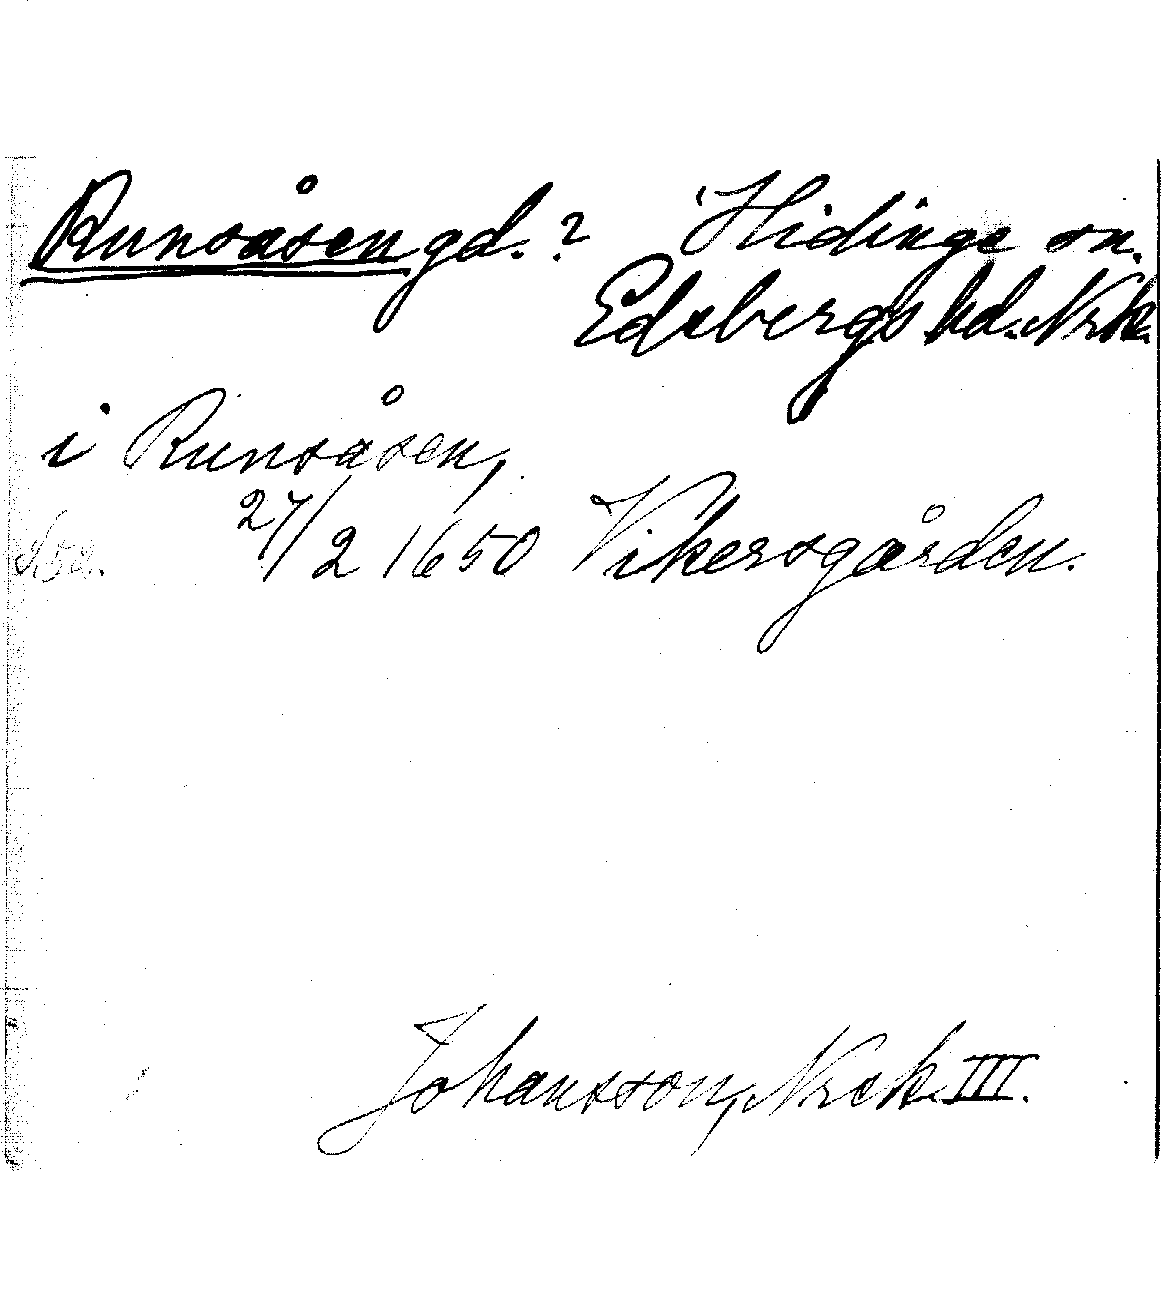 Runsåsen gd. ? Hidinge sn.
Edsbergs hd. Nrk.
i Runsåsen,
27/2 1650 Vikersgården.
S. 52.
Johansson, Noraskog III.